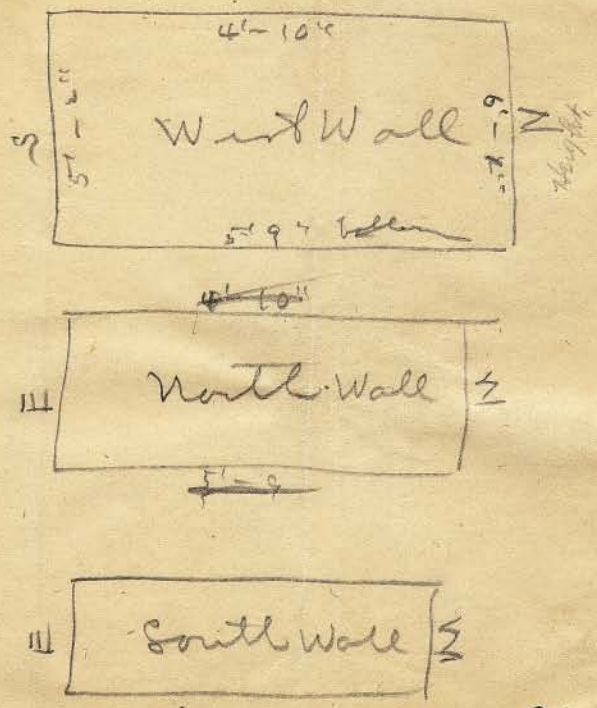 4'-10"
S
West Wall
N
Height
5' 9" bottom
4'-10"
E
North Wall
W
5'-9
E
South Wall
W